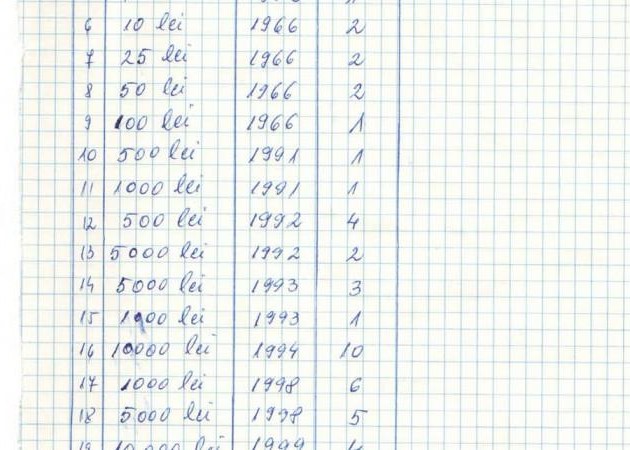 6 10 lei 1966 2
7 25 lei 1966 2
8 50 lei 1966 2
9 100 lei 1966 1
10 500 lei 1991 1
11 1000 lei 1991 1
12 500 lei 1992 4
13 5000 lei 1992 2
14 5000 lei 1993 3
15 1000 lei 1993 1
16 10000 lei 1994 10
17 1000 lei 1998 6
18 5000 lei 1998 5
19 10 000 lei 1999